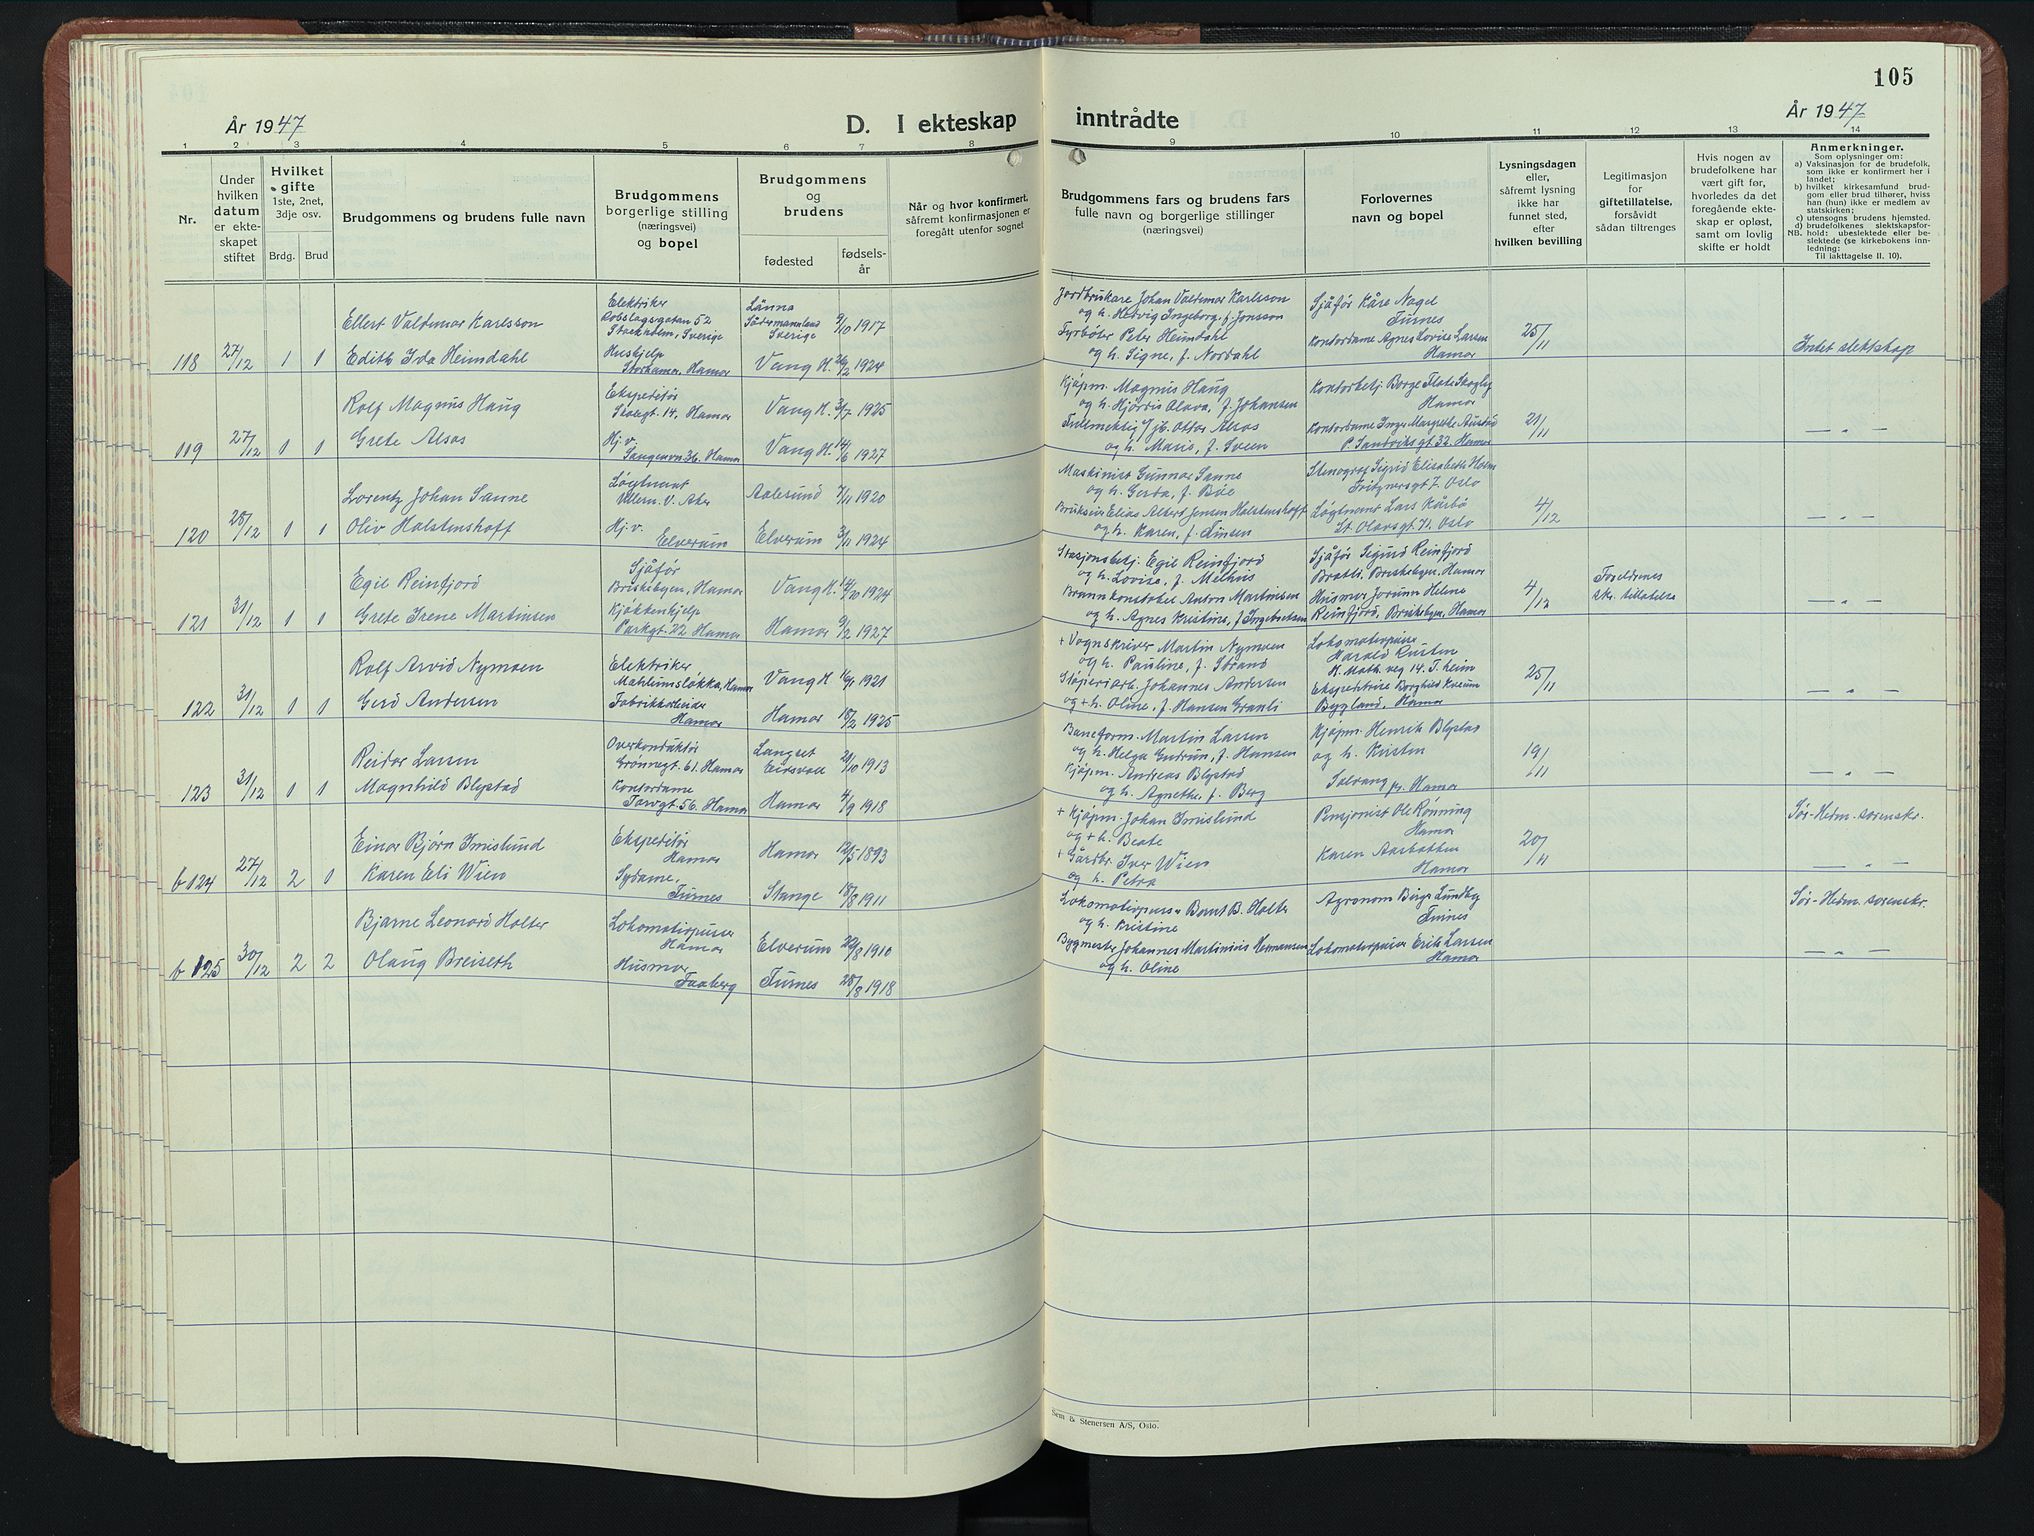 105
År 1947
D. I ekteskap
inntrådte
År 1947
1 2 3 4 5 6 7 8 9 10 11 12 13 14
Nr.
Under
hvilken
datum
er ekte-
skapet
stiftet
Hvilket
gifte
1ste, 2net,
3dje osv.
Brdg. Brud
Brudgommens og brudens fulle navn
Brudgommens
borgerlige stilling
(næringsvei)
og bopel
Brudgommens
og
brudens
fødested
fødsels-
år
Når og hvor konfirmert,
såfremt konfirmasjonen er
foregått utenfor sognet
Brudgommens fars og brudens fars
fulle navn og borgerlige stillinger
(næringsvei)
Forlovernes
navn og bopel
Lysningsdagen
eller,
såfremt lysning
ikke har
funnet sted,
efter
hvilken bevilling
Legitimasjon
for
giftetillatelse,
forsåvidt
sådan tiltrenges
Hvis nogen av
brudefolkene har
vært gift før,
hvorledes da det
foregående ekte-
skap er opløst,
samt om lovlig
skifte er holdt
Anmerkninger.
Som oplysninger om:
a) Vaksinasjon for de brudefolk,
som ikke er konfirmert her i
landet;
b) hvilket kirkesamfund brud-
gom eller brud tilhører, hviss
han (hun) ikke er medlem av
statskirken;
c) utensogns brudens hjemsted.
d) brudefolkenes slektskapsfor-
NB. hold: ubeslektede eller be-
slektede (se kirkebokens inn-
ledning:
Til iakttagelse II. 10).
118 27/12 1 1
Ellert Valdemar Karlsson
Edith Irda Heimdahl
Elektriker
Robslagsgatan 52
Stockholm, Sverige
Hushjelp
Storhamar, Hamar
Länna
Södermannland
Sverige
9/10 1917
Vang H. 26/2 1924
Jordbrukare Johan Valdemar Karlsson
og h. Hedvig Ingeborg, f. Jonsson
Fyrbøter Peter Heimdahl
og h. Signe, f. Nordahl
Sjåfør Kåre Nagel
Furnes
Kontordame Agnes Lovise Larsen
Hamar
25/11
Intet slektskap
119 27/12 1 1
Rolf Magnus Haug
Grete Alsos
Ekspeditør
Skolegt. 14. Hamar
Hj. v.
Sangenvn 36. Hamar
Vang H. 3/7 1925
Vang H. 14/6 1927
Kjøpm. Magnus Haug
og h. Hjørdis Olava, f. Johansen
Fullmektig v/jb. Ottar Alsos
og h. Marie, f. Sveen
Kontorbetj. Borge Flate Skogly
Hamar
Kontordame Inger Margrethe Austad
P. Sandviks gt 32. Hamar
21/11
— „ —
120 28/12 1 1
Lorentz Johan Sanne
Oliv Halstenshoff
Løytnant
Ullern. V. Aker
Hj. v.
Elverum
Aalesund 7/11 1920
Elverum 3/11 1924
Maskinist Gunnar Sanne
og h. Gerda, f. Bøe
Brukseier Elias Albert Jensen Halstenshoff
og h. Karen, f. Simsen
Stenograf Sigrid Elisabeth Holm
Fritznersgt 7. Oslo
Løytnant Lars Kårbø
St. Olavsgt 71. Oslo
4/12
— „ —
121 31/12 1 1
Egil Reinfjord
Grete Irene Martinsen
Sjåfør
Briskebyen, Hamar
Kjøkkenhjelp
Parkgt. 22 Hamar
Vang H. 14/10 1924
Hamar 9/2 1927
Stasjonsbetj. Egil Reinfjord
og h. Lovise, f. Melhus
Brannkonstabel Anton Martinsen
og h. Agnes Kristine, f. Ingebretsen
Sjåfør Sigurd Reinfjord
Bratli, Briskebyen, Hamar
Husmor Jorunn Helene
Reinfjord, Briskebyen, Hamar
4/12
Foreldrenes
skr. tillatelse
— „ —
122 31/12 1 1
Rolf Arvid Nymoen
Gerd Andersen
Elektriker
Mæhlumsløkka, Hamar
Fabrikkarbeider
Hamar
Vang H 16/1 1921
Hamar 18/2 1925
+ Vognskriver Martin Nymoen
og h. Pauline, f. Strand
Støperiarb. Johannes Andersen
og + h. Oline, f. Hansen Granli
Lokomotivpusser
Harald Rusten
K. Math. veg 14. T. heim
Ekspeditrise Borghild Kveum
Bygland, Hamar
25/11
— „ —
123 31/12 1 1
Reidar Larsen
Magnhild Blystad
Overkonduktør
Grønnegt. 61. Hamar
Kontordame
Torvgt. 56. Hamar
Langset
Eidsvoll
21/10 1913
Hamar 4/9 1918
Baneform. Martin Larsen
og h. Helga Gudrun, f. Hansen
Kjøpm. Andreas Blystad
og h. Agnethe, f. Berg
Kjøpm. Henrik Blystad
og h. Kirsten
Solvang pr. Hamar
19/11
— „ —
b 124 27/12 2 1
Einar Bjørn Imislund
Karen Eli Wien
Ekspeditør
Hamar
Sydame,
Furnes
Hamar 12/5 1893
Stange 18/8 1911
+ Kjøpm. Johan Imislund
og + h. Beate
+ Gårdbr. Iver Wien
og h. Petra
Pensjonist Ole Rønning
Hamar
Karen Aarbakken
Hamar
20/11
Sør-Hedm. sorenskr.
— „ —
b 125 30/12 2 2
Bjarne Leonard Holter
Olaug Breiseth
Lokomotivpusser
Hamar
Husmor
Faaberg
Elverum 22/8 1910
Furnes 28/8 1918
Lokomotivpusser Bernt B. Holter
og h. Kristine
Bygmester Johannes Martinius Hermansen
og h. Oline
Agronom Birger Lundby
Furnes
Lokomotivpusser Erik Larsen
Hamar
Sør-Hedm. sorenskr.
— „ —
Sem & Stenersen A/S, Oslo.